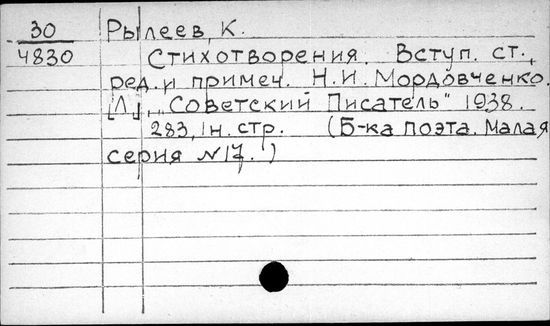 30 Рылеев, К.
4830 Стихотворения. Вступ. ст.,
ред. и примеч. Н.И. Мордовченко.
[Л.], „Советский Писатель" 1938.
283, 1н. стр. (Б-ка поэта. Малая
серия №17.)